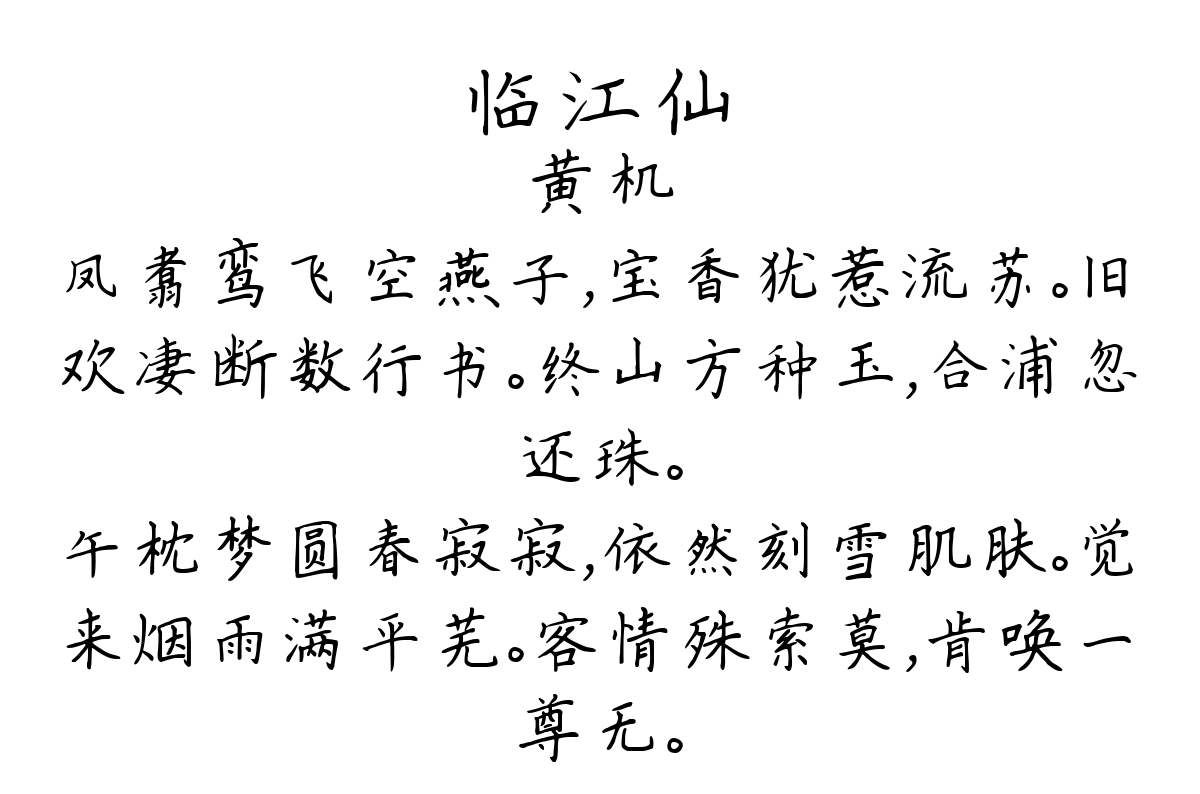 临江仙
黄机
凤翥鸾飞空燕子,宝香犹惹流苏。旧
欢凄断数行书。终山方种玉,合浦忽
还珠。
午枕梦圆春寂寂,依然刻雪肌肤。觉
来烟雨满平芜。客情殊索莫,肯唤一
尊无。